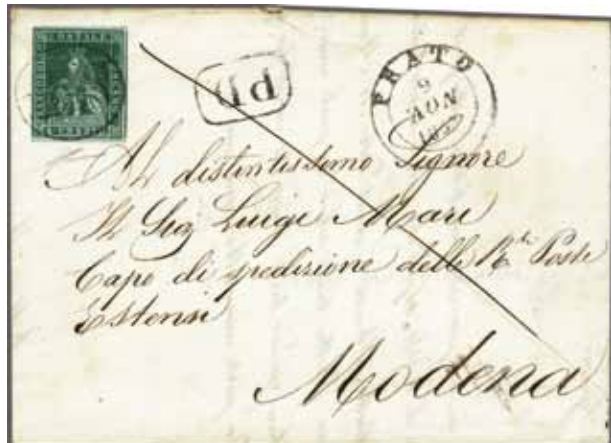 PD
PRATO
9
NOV
Al distintissimo Signore
Il Sig Luigi Mari
Capo di spedizione delle R.li Poste
Estensi
Modena